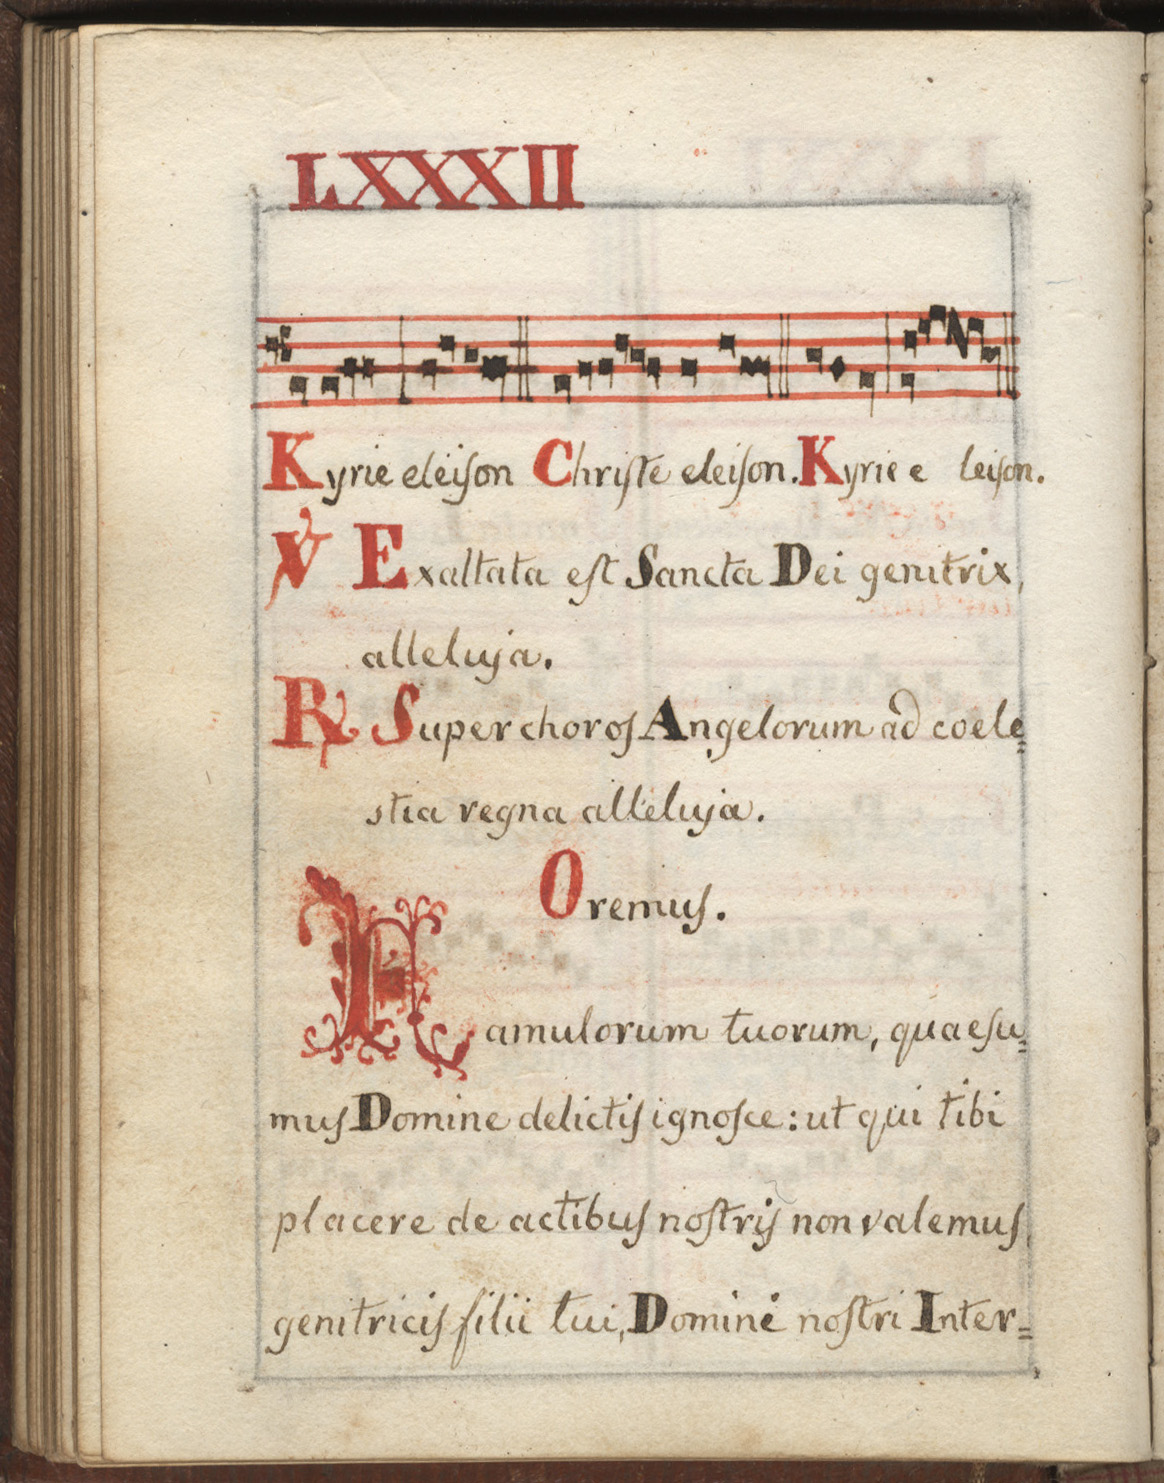 LXXXII
Kyrie eleiſon Chriſte eleiſon. Kyrie e leiſon.
℣ Exaltata eſt Sancta Dei genitrix,
alleluja.
℟ Super choroſ Angelorum ad coele=
stia regna alleluja.
Oremuſ.
Famulorum tuorum, quaeſu=
muſ Domine delictiſ ignoſce: ut qui tibi
placere de actibuſ noſtriſ non valemuſ
genitriciſ filii tui, Domini noſtri Inter=